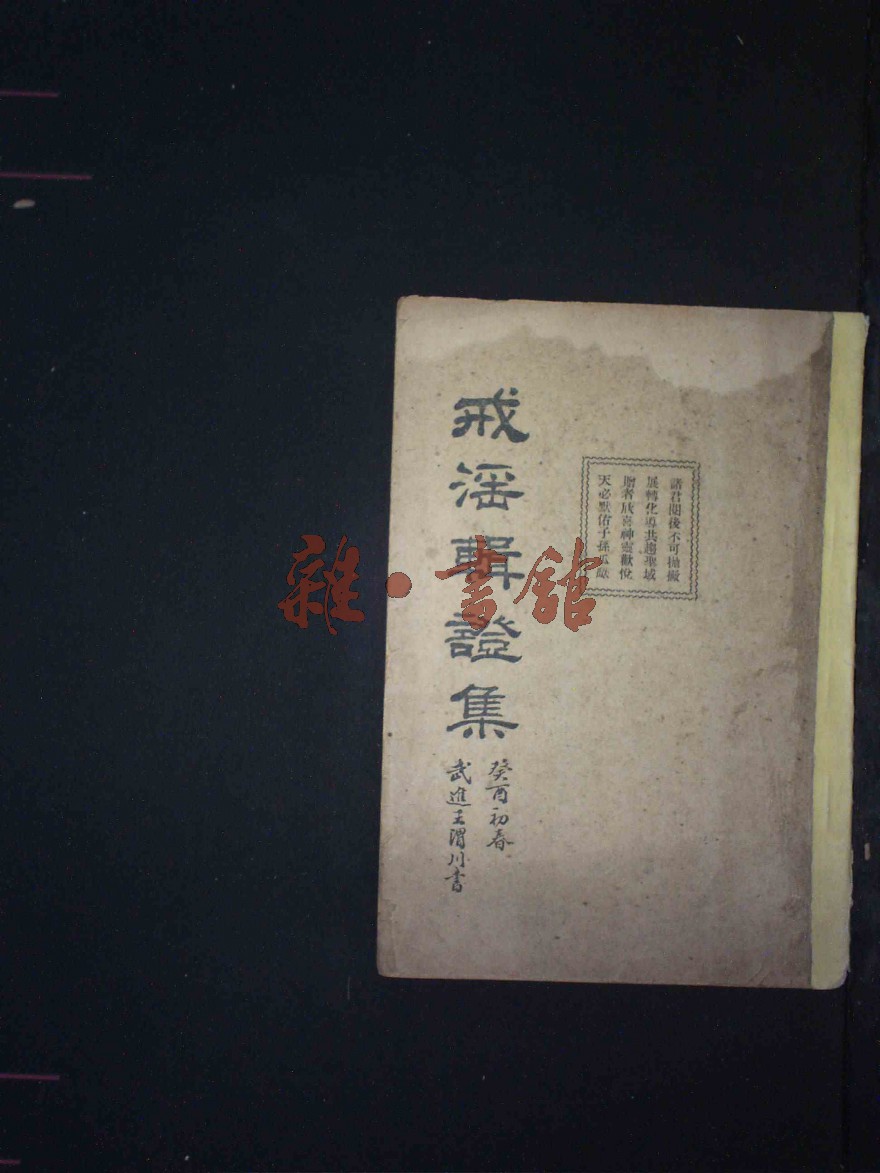 諸君閱後不可拋撇
展轉化導共趨聖域
贈者成喜神靈歡悅
天必默佑子孫瓜瓞
戒淫輯證集
癸酉初春
武進王渭川書
雜·書館